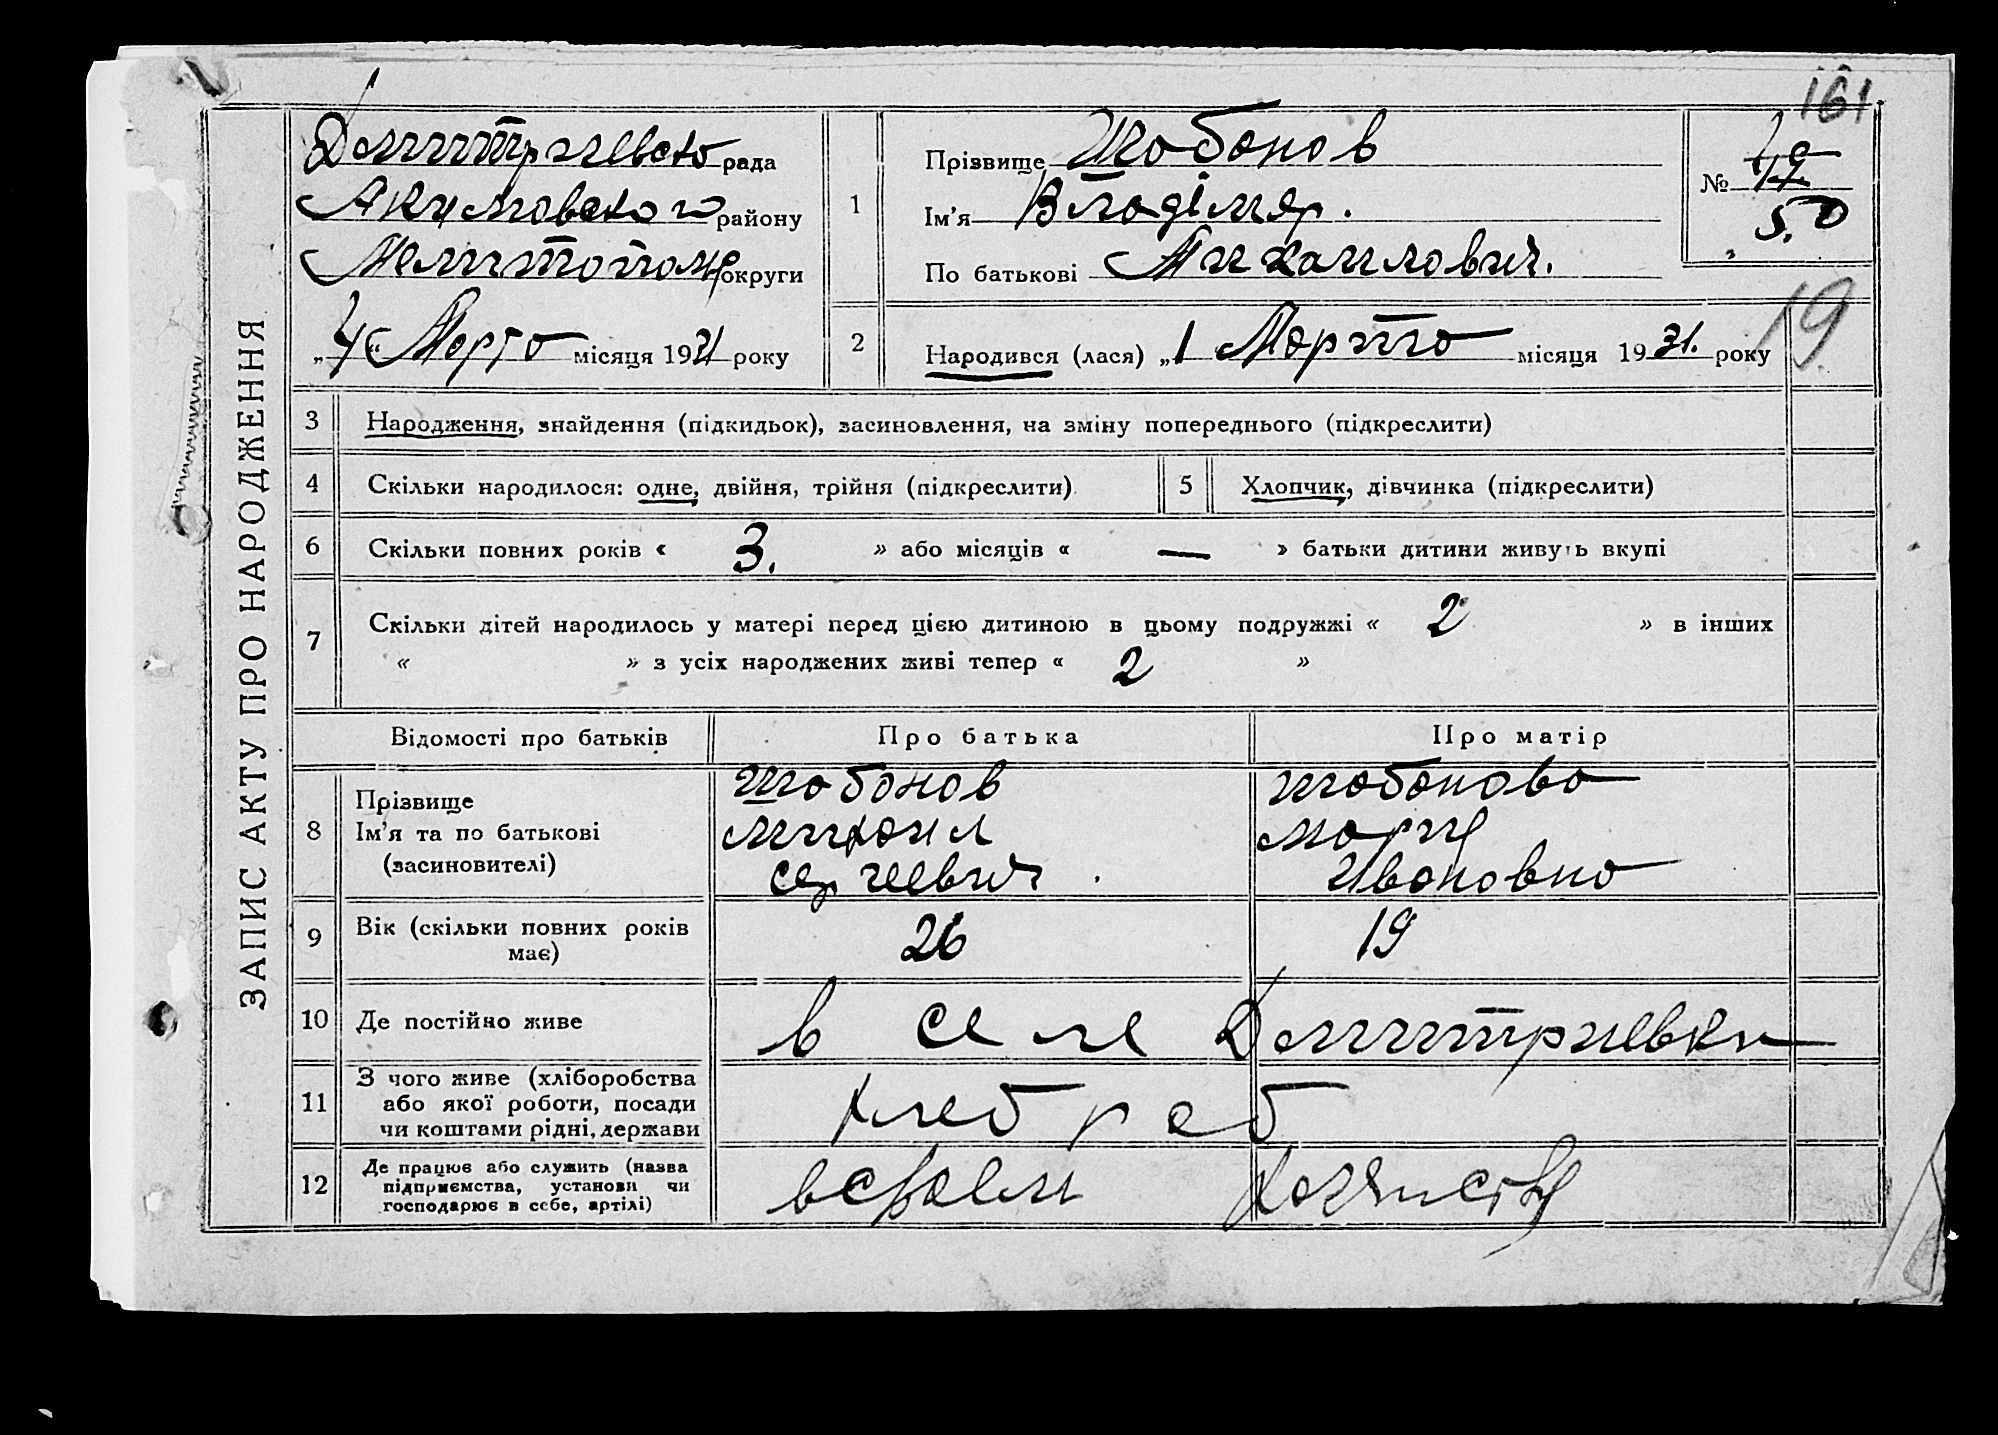 161
ЗАПИС АКТУ ПРО НАРОДЖЕННЯ
Дмитриевско рада
Акимовского району
Мелитопол округи
„4“ Марта місяця 1931 року
1
Прізвище Шабанов
Ім’я Владімир.
По батькові Михаилович.
№ 50
2
Народився (лася) „1 Марта місяця 1931. року
19.
3 Народження, знайдення (підкидьок), засиновлення, на зміну попереднього (підкреслити)
4 Скільки народилося: одне, двійня, трійня (підкреслити) 5 Хлопчик, дівчинка (підкреслити)
6 Скільки повних років « 3. » або місяців « — » батьки дитини живуть вкупі
7 Скільки дітей народилось у матері перед цією дитиною в цьому подружжі « 2 » в інших
« » з усіх народжених живі тепер « 2 »
Відомості про батьків Про батька Про матір
8
Прізвище
Ім’я та по батькові
(засиновителі)
Шабанов
Михаил
Сергеевич.
Шабанова
Мария
Ивановна
9 Вік (скільки повних років
має)
26 19
10 Де постійно живе в селе Дмитриевки
11
З чого живе (хліборобства
або якої роботи, посади
чи коштами рідні, держави
хлебороб
12
Де працює або служить (назва
підприємства, установи чи
господарює в себе, артілі)
в своем